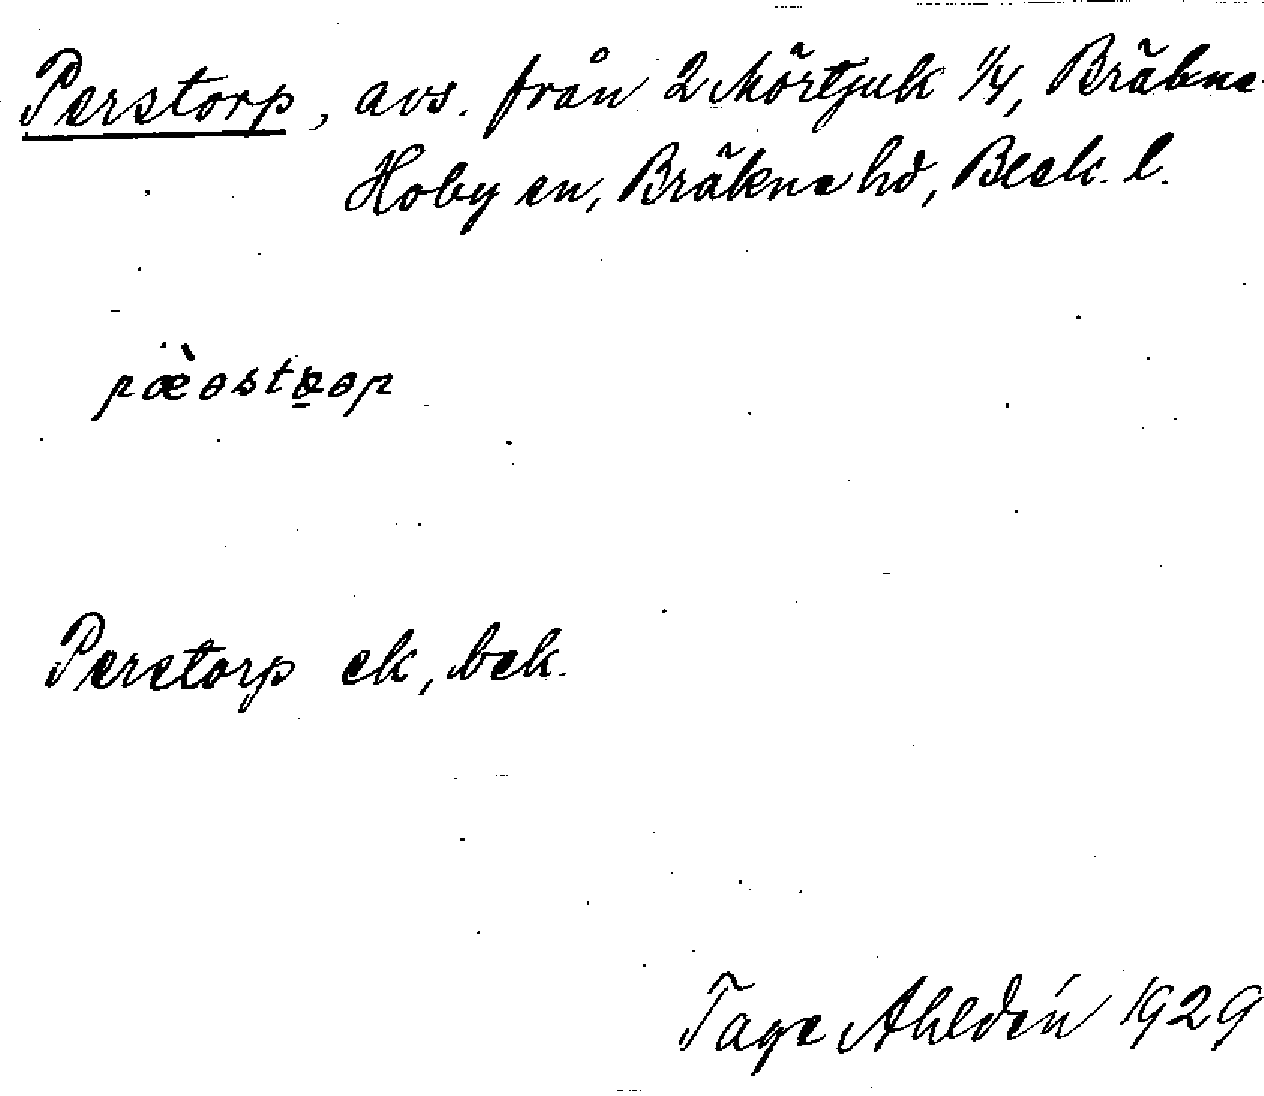 Perstorp, avs. från 2 Mörtjuk 1/4, Bräkne-
Hoby sn, Bräkne hd, Blek. l.
pæ̀əstꝛəp
Perstorp ek, bek.
Tage Ahldén 1929